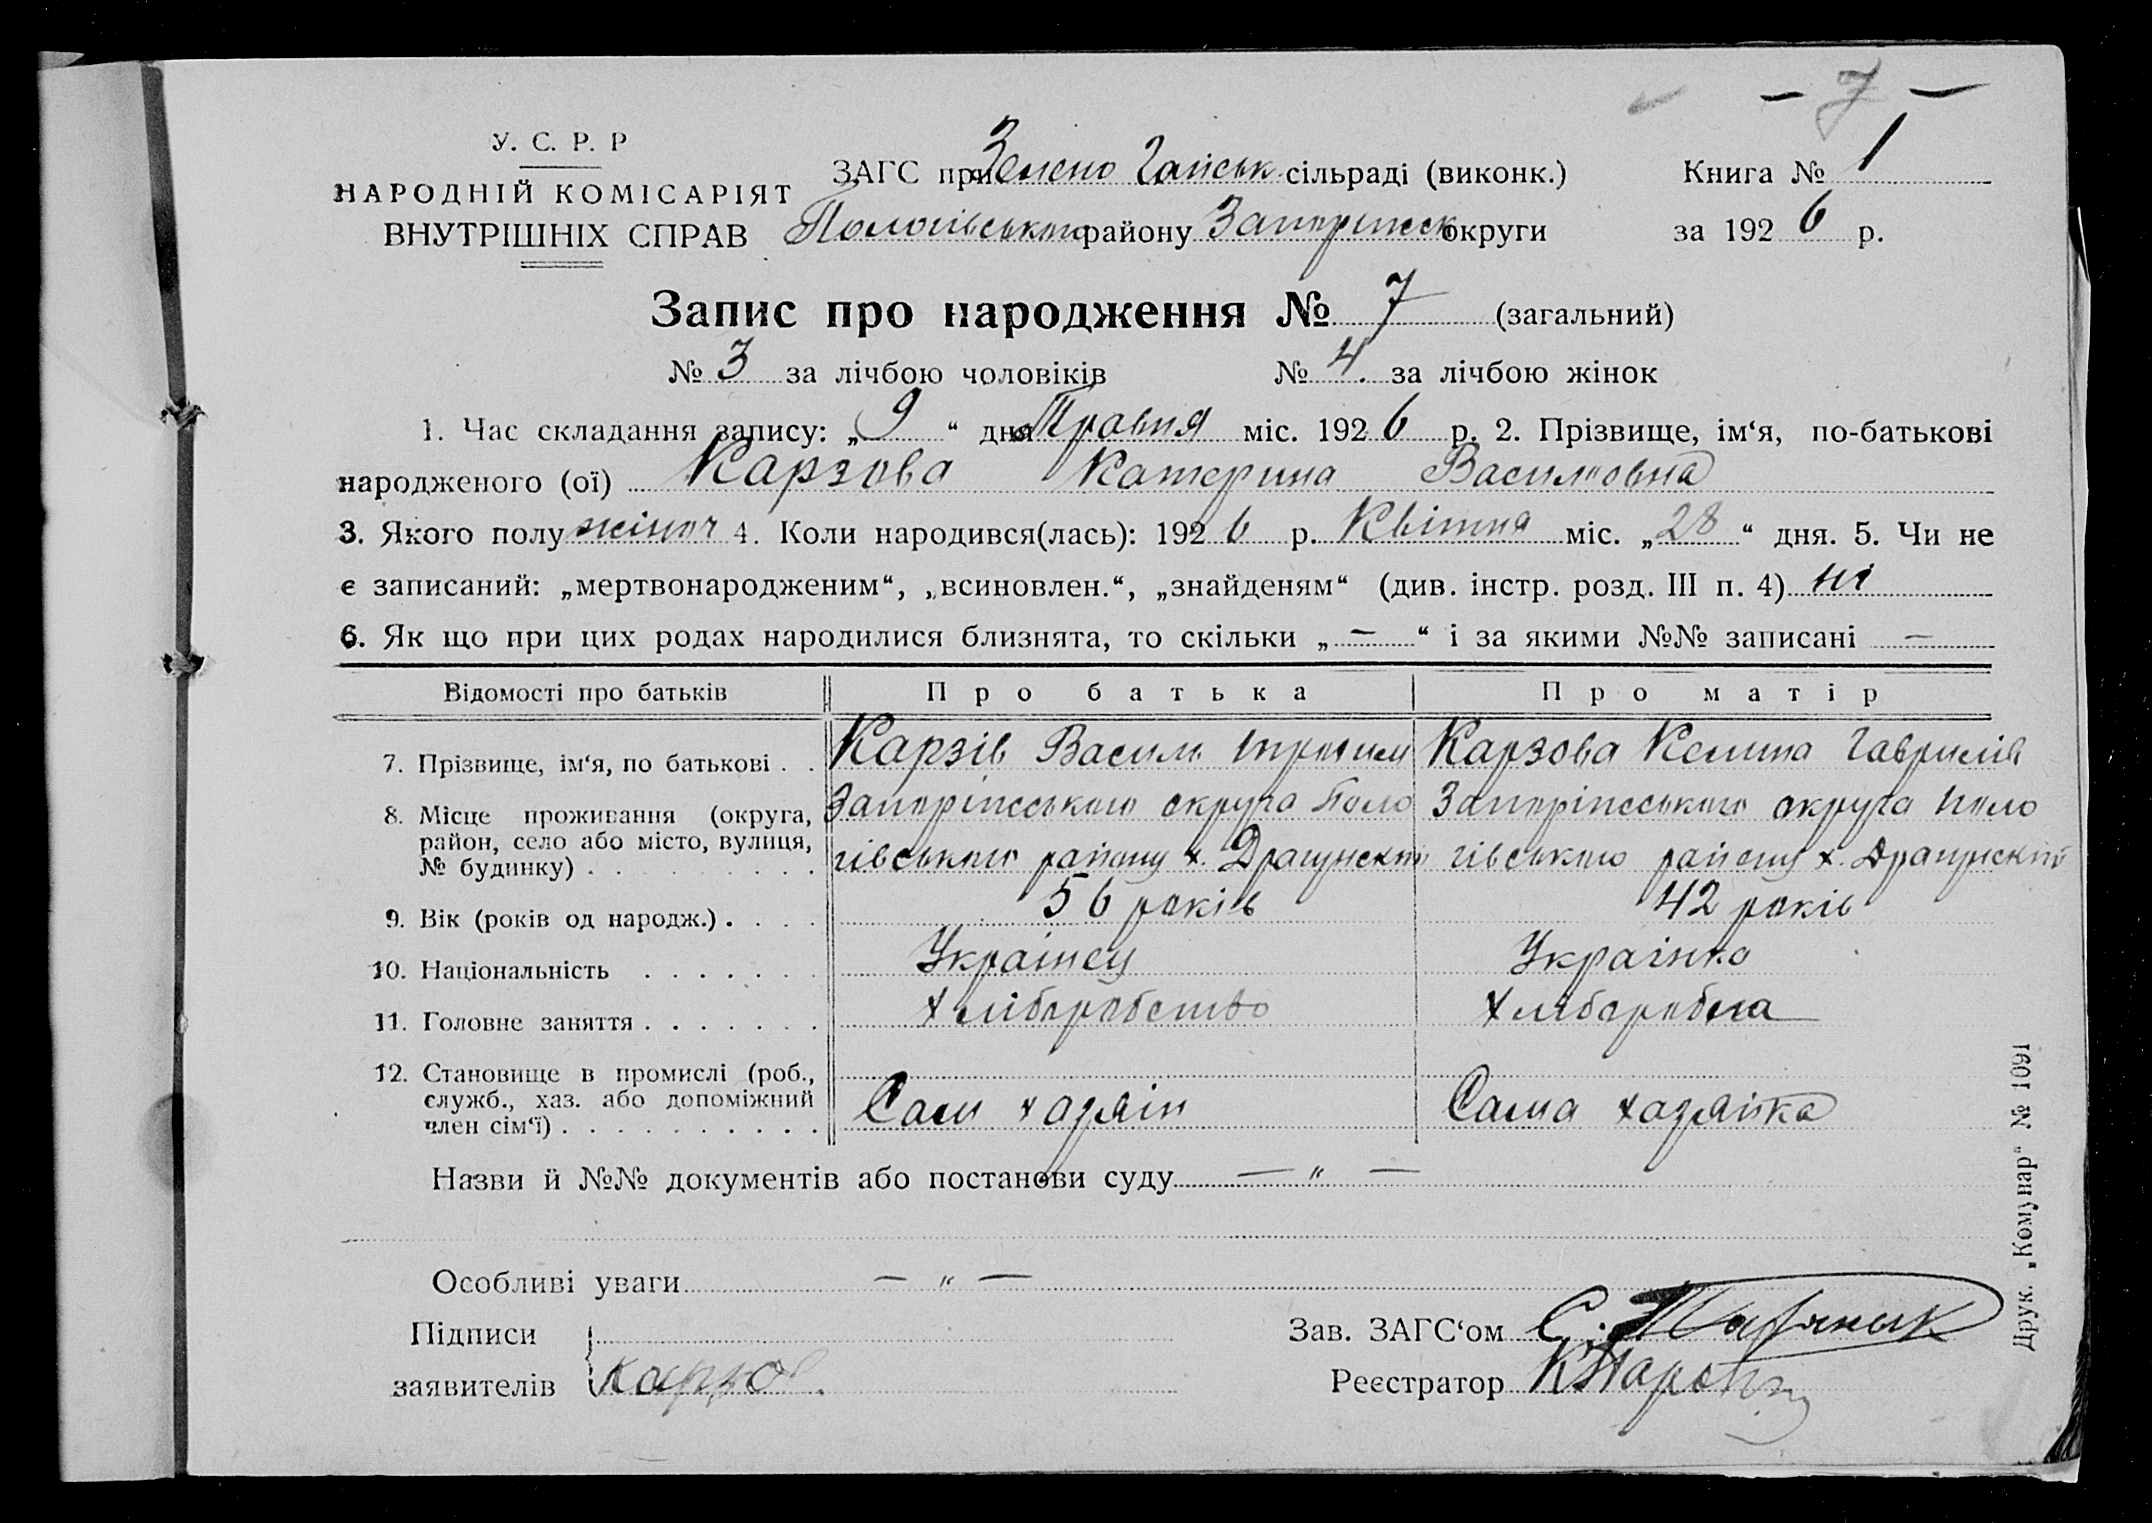 — 7 —
У. С. Р. Р
НАРОДНІЙ КОМІСАРІЯТ
ВНУТРІШНІХ СПРАВ
ЗАГС при Зелено Гайськ сільраді (виконк.)
Пологівського району Запоріжськ округи
Книга № 1
за 1926 р.
Запис про народження № 7 (загальний)
№ 3 за лічбою чоловіків № 4. за лічбою жінок
1. Час складання запису: „9“ дня Травня міс. 1926 р. 2. Прізвище, ім‘я, по-батькові
народженого (ої) Карзова Катерина Василовна
3. Якого полу жіноч 4. Коли народився(лась): 1926 р. Квітня міс. „28“ дня. 5. Чи не
є записаний: „мертвонародженим“, „всиновлен.“, „знайденям“ (див. інстр. розд. III п. 4) ні
6. Як що при цих родах народилися близнята, то скільки „—“ і за якими №№ записані —
Відомості про батьків Про батька Про матір
7. Прізвище, ім‘я, по батькові . . Карзів Василь Карзова Гаврилів
8. Місце проживання (округа, Запоріжського округа Поло Запоріжського округа Поло
район, село або місто, вулиця, гівського району х. Драгунский гівського району х. Драгунский
№ будинку) . . . . . . . . .
9. Вік (років од народж.) . . . . 56 років 42 років
10. Національність . . . . . . . Украінец Украінка
11. Головне заняття . . . . . . . Хліборобство Хліборобка
12. Становище в промислі (роб.,
служб., хаз. або допоміжний Сам хазяін Сама хазяйка
член сім‘ї) . . . . . . . . . .
Назви й №№ документів або постанови суду — „ —
Особливі уваги — „ —
Підписи
заявителів Карзов
Зав. ЗАГС‘ом С.
Реєстратор
Друк. „Комунар“ № 1091